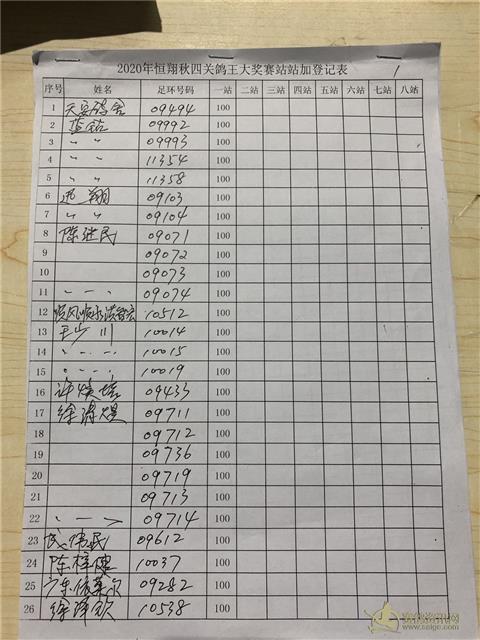 2020年恒翔秋四关鸽王大奖赛站站加登记表
序号 姓名 足环号码 一站 二站 三站 四站 五站 六站 七站 八站
1 天安鸽舍 09494 100
2 蓝钻 09992 100
3 〃 〃 09993 100
4 〃 〃 11354 100
5 11358 100
6 迅翔 09103 100
7 〃 〃 09104 100
8 陈继民 09071 100
9 09072 100
10 09073 100
11 09074 100
12 10512 100
13 平步川 10014 100
14 10015 100
15 10019 100
16 许焕 09433 100
17 徐涛煜 09711 100
18 09712 100
19 09736 100
20 09719 100
21 09713 100
22 09714 100
23 伟民 09612 100
24 陈桂健 10037 100
25 广东依莱尔 09282 100
26 徐泽钦 10538 100
赛鸽资讯网
www.saige.com